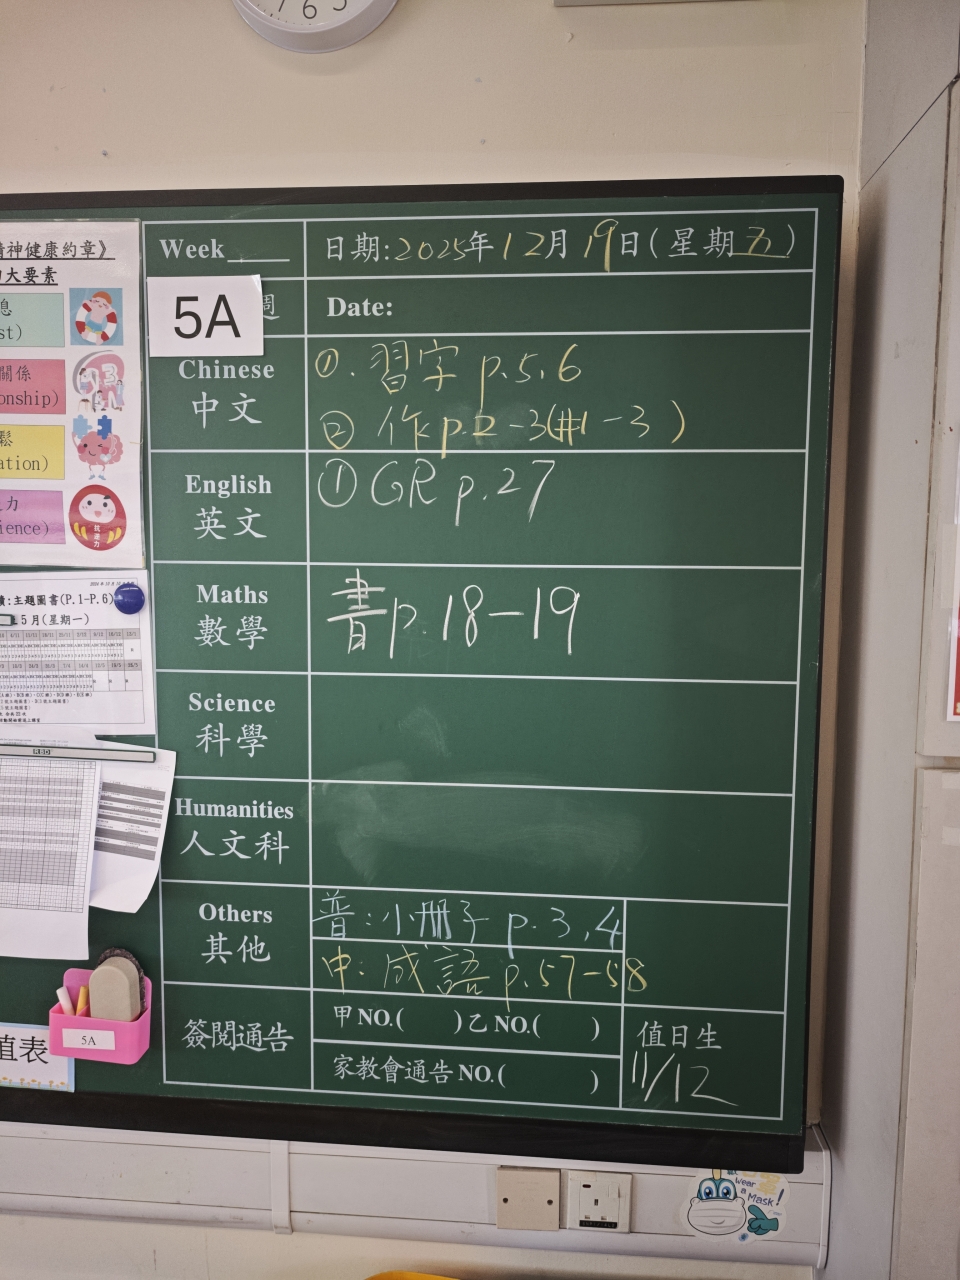 6
精神健康約章》
大要素
st)
關係
onship)
鬆
ation)
力
ience)
抗逆力
主題圖書(P.1-P.6)
5月(星期一)
Week
日期:2025年12月19日(星期五)
5A
週
Date:
Chinese
中文
①. 習字 p.5,6
② 作p.2-3(#1-3)
English
英文
① GR p.27
Maths
數學
書p.18-19
Science
科學
Humanities
人文科
Others
其他
普:小冊子 p.3,4
中:成語 p.57-58
簽閱通告
甲NO.( )乙NO.( )
家教會通告NO.( )
值日生
11/12
5A
值表
Wear
a
Mask!